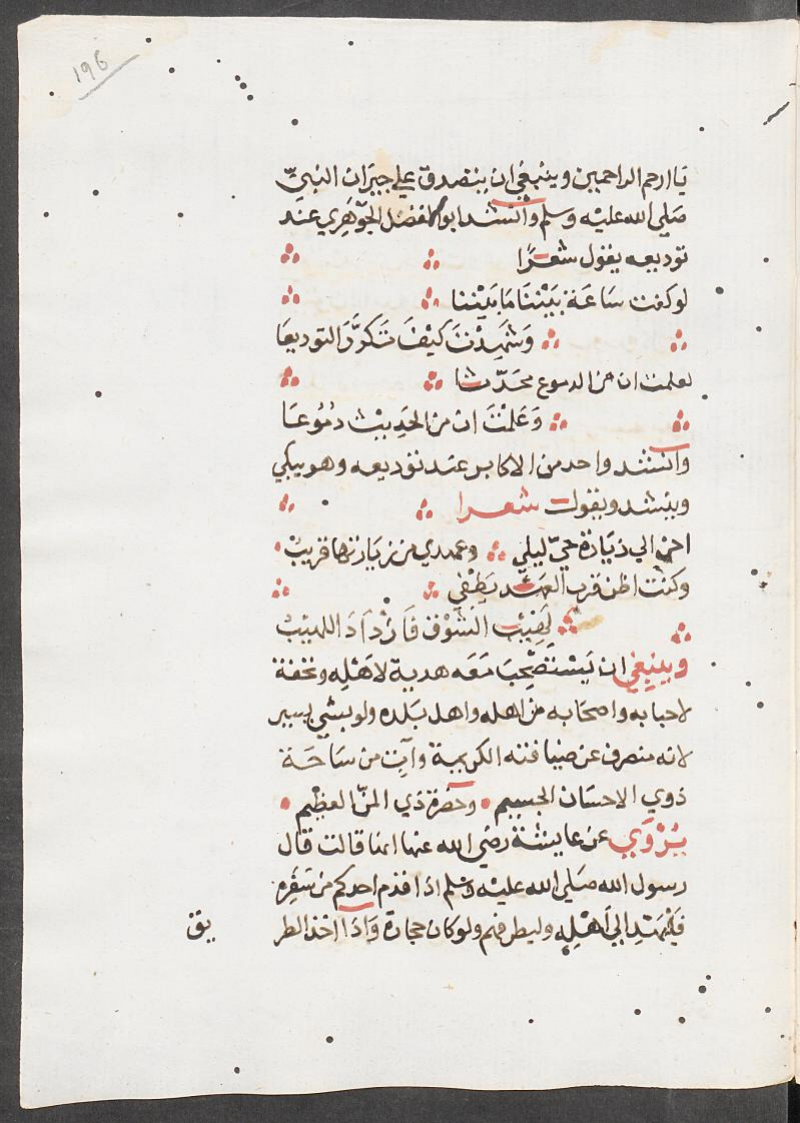 196
يَا ارحم الراحمين وينبغي ان يتصدق علي جيران النبيّ
صَلي الله عليه وسلم وانشد ابو الفضل الجوّهري عند
توديعه يقول شعرًا
لو كنت سَاعَة بَيْننَا مَا بَيْننا
وَشَهِدْتَ كيْفَ تَكرَّرَ التوديعَا
لعلمت ان من الدموع محَدّثا
وَعَلمْتَ ان من الحَديْث دُمُوعَا
وانشد واحد من الاكابر عند توديعه وهو يبكي
وينشد ويقول شعرا
احن الي زيَارة حيّ ليلي وعهدي من زيَارتها قريبُ
وكنت اظن قرب العهد يَطْفي
لَهِيْبَ الشوْق فازْدَادَ اللهيْبُ
وينبغي ان يَسْتصْحِبَ مَعَه هدية لاهْلِه وتحفة
لاحبابه واصحَابه من اهله واهل بَلده ولو بشي يسير
لانه منصرف عن ضيافته الكريمة وآيِت من سَاحَة
ذوي الاحسَان الجسيم وحضرة ذي المنّ العظيم
يُرْوَي عن عايشة رضي الله عنها انها قالت قال
رسول الله صَلي الله عليه وسلم اذا قدم احدكم من سَفَرِه
فَلْيُهْدِ الي اَهْلِه وليطرفهم ولو كان حجارة وَاذَا اخذ الطر
يق